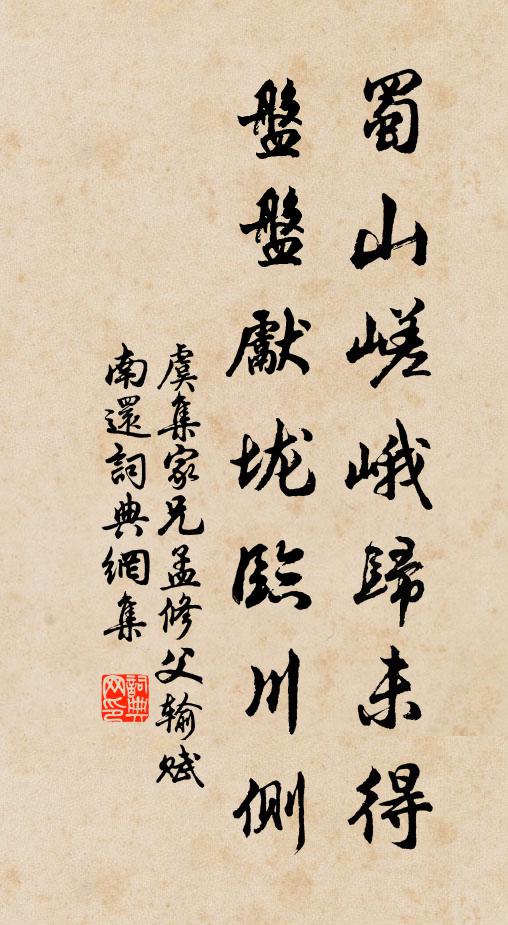 蜀山嵯峨歸未得
盤盤獻垅臨川側
虞集家兄孟修父输賦
南還詞典網集
詞典網印